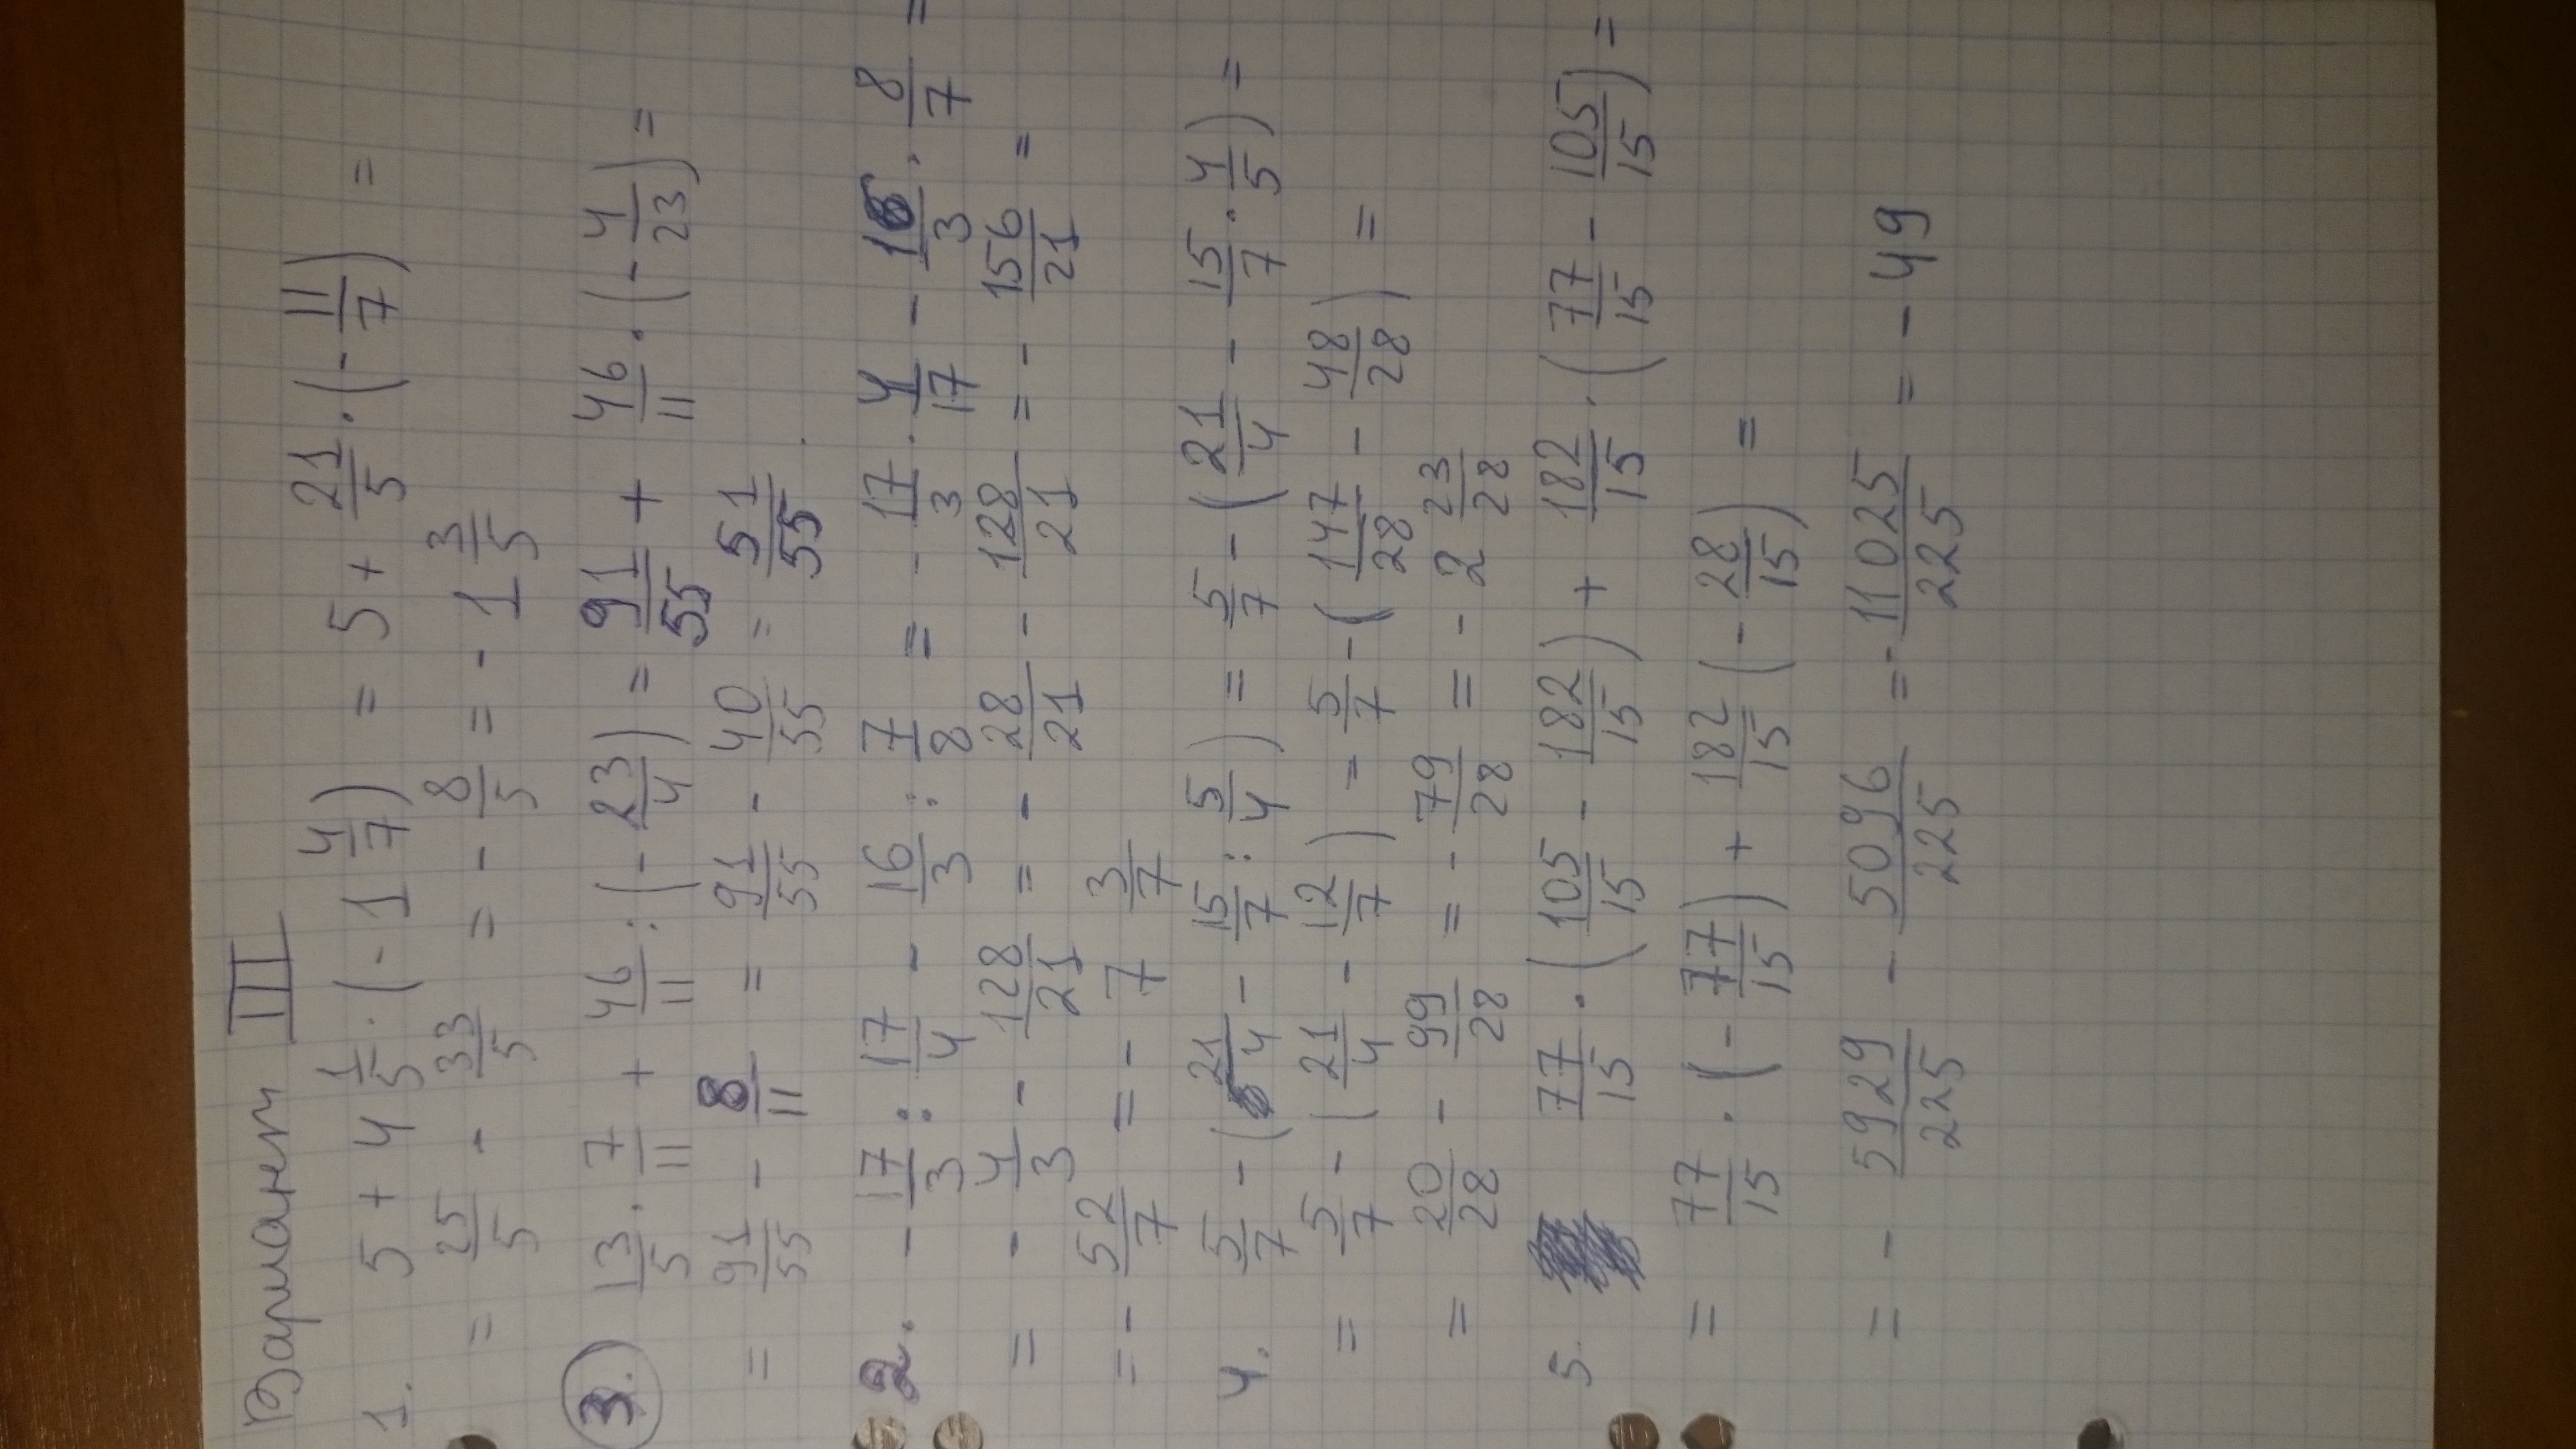 Вариант III
1. 5 + 4 1/5 · (- 1 4/7) = 5 + 21/5 · (- 11/7) =
= 25/5 - 33/5 = - 8/5 = - 1 3/5
3. 13/5 · 7/11 + 46/11 : (- 23/4) = 91/55 + 46/11 · (- 4/23) =
= 91/55 - 8/11 = 91/55 - 40/55 = 51/55
2. - 17/3 : 17/4 - 16/3 : 7/8 = - 17/3 · 4/17 - 16/3 · 8/7 =
= - 4/3 - 128/21 = - 28/21 - 128/21 = - 156/21 =
= - 52/7 = - 7 3/7
4. 5/7 - (21/4 - 15/7 : 5/4) = 5/7 - (21/4 - 15/7 · 4/5) =
= 5/7 - (21/4 - 12/7) = 5/7 - (147/28 - 48/28) =
= 20/28 - 99/28 = - 79/28 = - 2 23/28
5. 77/15 · (105/15 - 182/15) + 182/15 · (77/15 - 105/15) =
= 77/15 · (- 77/15) + 182/15 (- 28/15) =
= - 5929/225 - 5096/225 = - 11025/225 = - 49